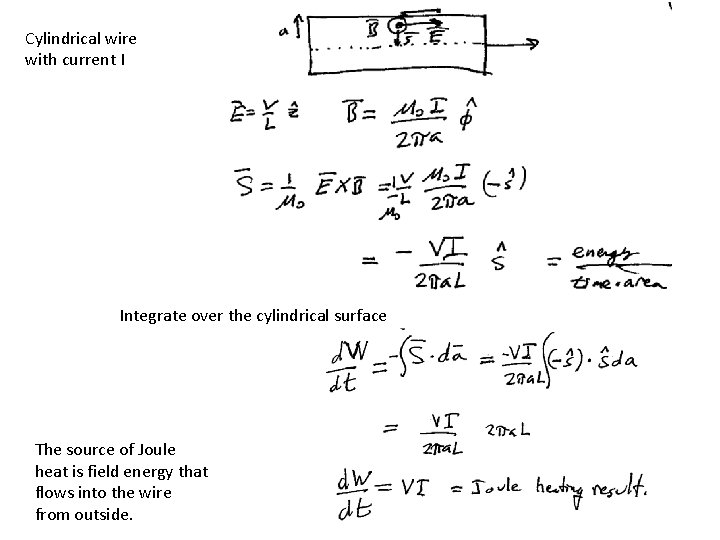 Cylindrical wire
with current I
a B S E
E = V/L ẑ B = μ₀I/2πa φ̂
S = 1/μ₀ E×B = 1/μ₀ V/L μ₀I/2πa (-ŝ)
= - VI/2πaL ŝ = energy/time·area
Integrate over the cylindrical surface
dW/dt = -∫S·da = -VI/2πaL ∫(-ŝ)·ŝda
= VI/2πaL 2πaL
The source of Joule
heat is field energy that
flows into the wire
from outside.
dW/dt = VI = Joule heating result.